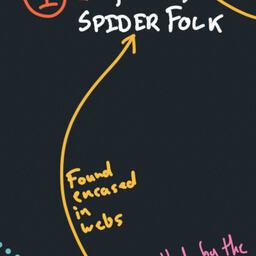 1
SPIDER FOLK
Found
encased
in
webs
by the